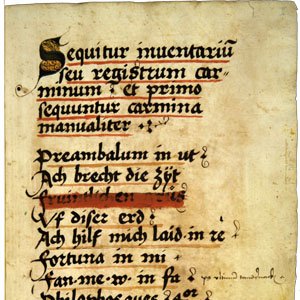 Sequitur inventariū
seu registrum car-
minum et primo
sequuntur carmina
manualiter
Preambalum in ut
Ach brecht die zÿt
Uf diser erd
Ach hilf mich laid in re
Fortuna in mi
Fan · me · w · in fa
Philophos ques 4or